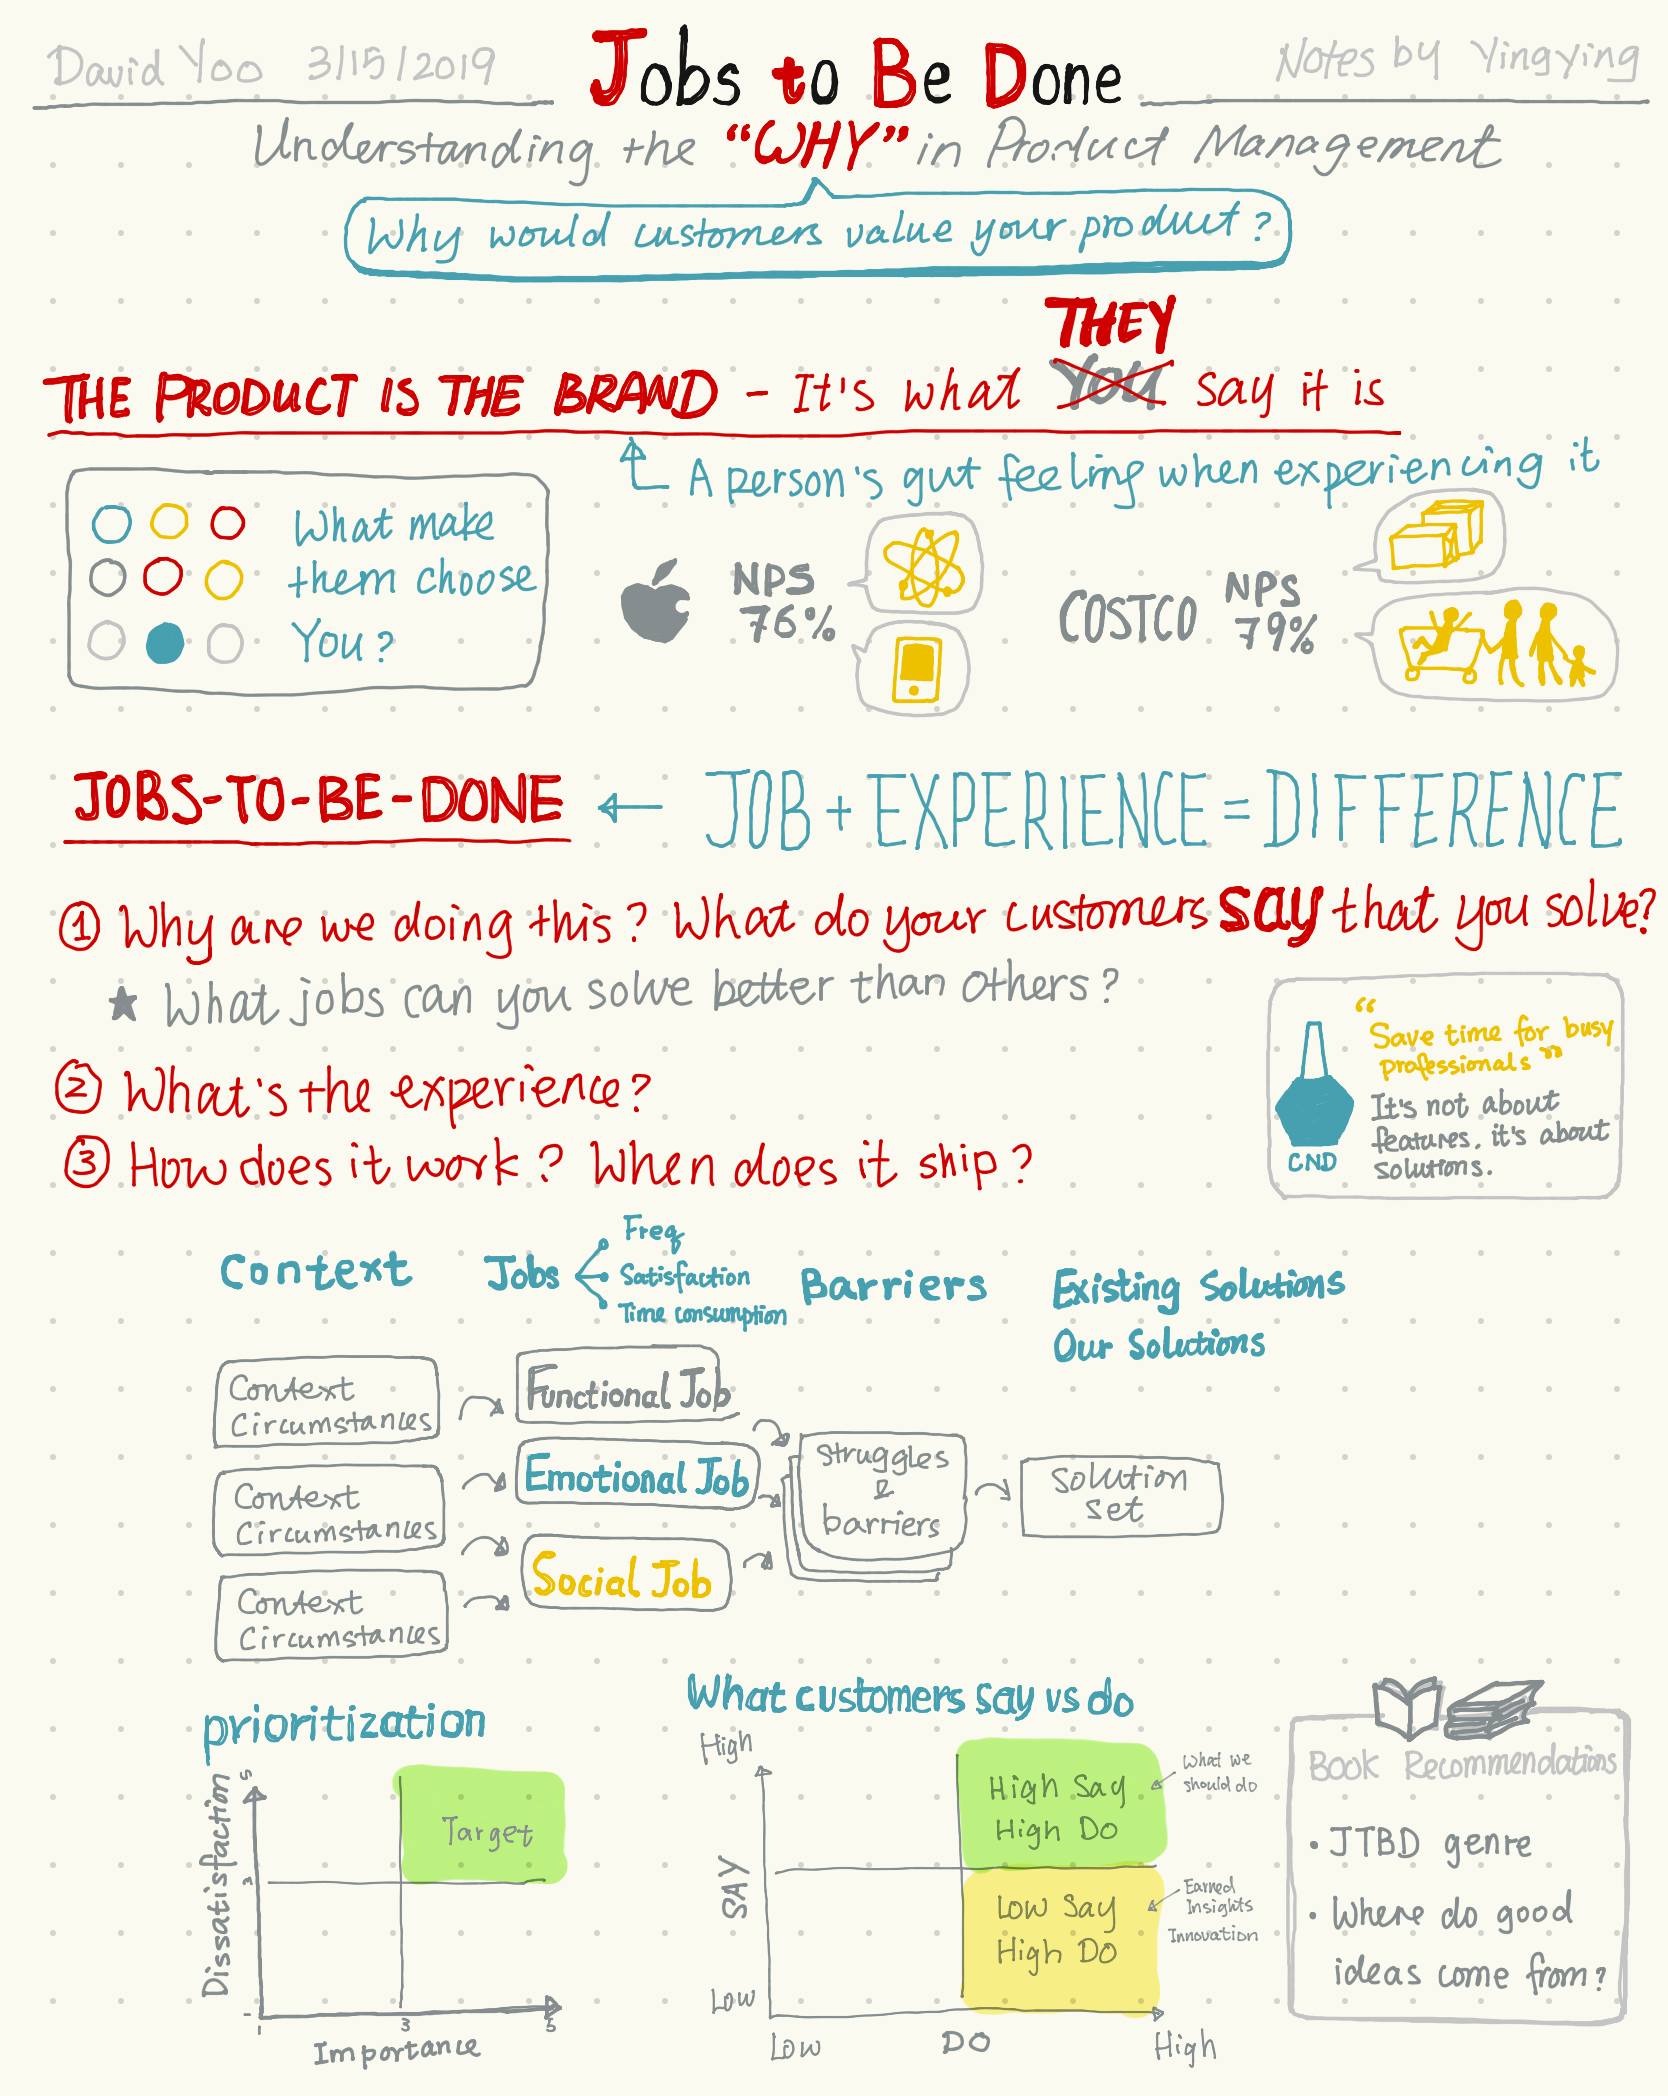 David Yoo 3/15/2019
Jobs to Be Done
Notes by Yingying
Understanding the "WHY" in Product Management
Why would customers value your product?
THEY
THE PRODUCT IS THE BRAND - It's what YOU say it is
A person's gut feeling when experiencing it
What make
them choose
You?
NPS
76%
COSTCO
NPS
79%
JOBS-TO-BE-DONE ← JOB + EXPERIENCE = DIFFERENCE
① Why are we doing this? What do your customers say that you solve?
★ What jobs can you solve better than others?
② What's the experience?
③ How does it work? When does it ship?
"Save time for busy
professionals"
It's not about
features. it's about
solutions.
CND
Context
Jobs
Freq
Satisfaction
Time consumption
Barriers
Existing Solutions
Our Solutions
Context
Circumstances
Context
Circumstances
Context
Circumstances
Functional Job
Emotional Job
Social Job
Struggles
&
barriers
Solution
set
prioritization
Dissatisfaction
5
3
1
Target
1
3
5
Importance
What customers say vs do
High
SAY
Low
High Say
High Do
Low Say
High Do
What we
should do
Earned
Insights
Innovation
Low
DO
High
Book Recommendations
• JTBD genre
• Where do good
ideas come from?